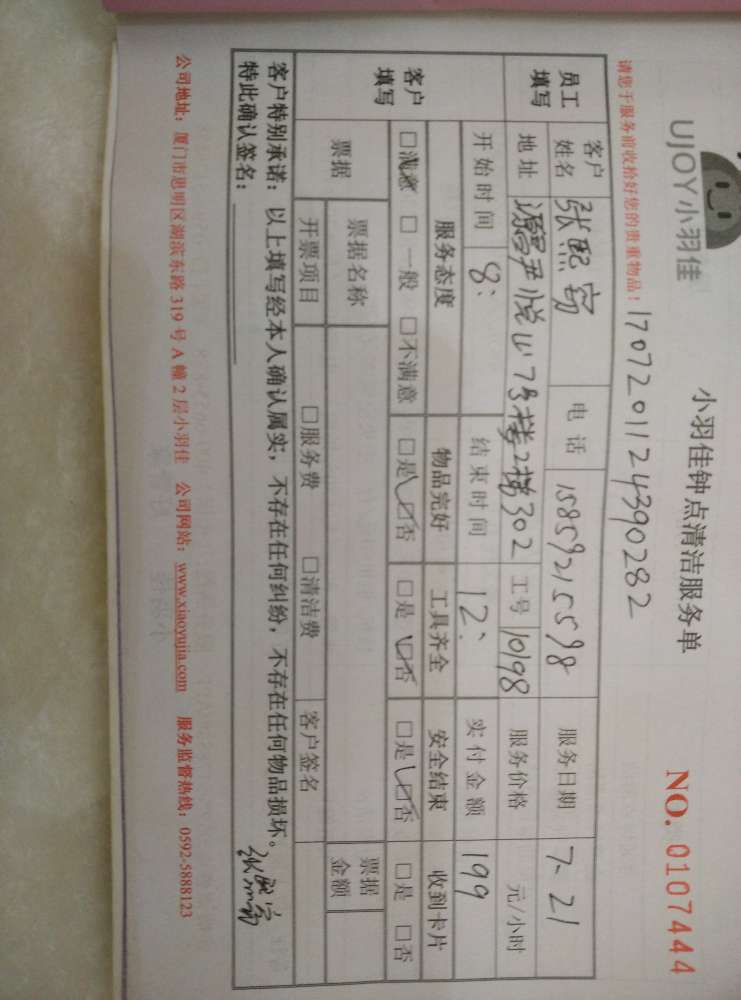 UJOY小羽佳
小羽佳钟点清洁服务单
NO. 0107444
请您于服务前收拾好您的贵重物品!
1707201124390282
员工填写
客户姓名 张熙 电话 15859215598 服务日期 7-21
地址 悦山 7号楼2梯302 工号 10198 服务价格 元/小时
开始时间 8: 结束时间 12: 实付金额 199
客户填写
服务态度 物品完好 工具齐全 安全结束 收到卡片
□满意 □一般 □不满意 □是 □否 □是 □否 □是 □否 □是 □否
票据 票据名称 票据金额
开票项目 □服务费 □清洁费 客户签名
客户特别承诺: 以上填写经本人确认属实, 不存在任何纠纷, 不存在任何物品损坏。
特此确认签名:
公司地址: 厦门市思明区湖滨东路 319 号 A 幢 2 层小羽佳 公司网站: www.xiaoyujia.com 服务监督热线: 0592-5888123